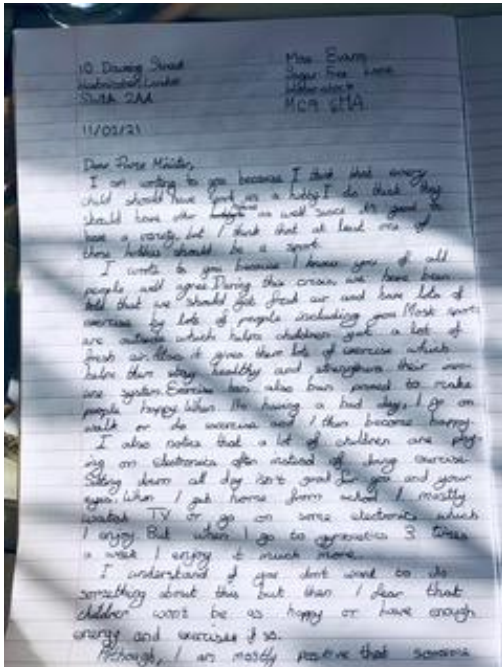 10 Downing Street
Westminster, London
SW1A 2AA
Miss Evans
Sugar Free Lane
11/02/21
Dear Prime Minister,
I am writing to you because I think that every
child should have sport as a hobby. I do think they
should have other as well since it's good to
have a variety but I think that at least one of
those hobbies should be a sport.
I wrote to you because I know you of all
people will agree. During this crisis we have been
told that we should get fresh air and have lots of
exercise by lots of people including you. Most sports
are outside which helps children get a lot of
fresh air. Also it gives them lots of exercise which
helps them stay healthy and strengthens their imm
une system. Exercise has also been proved to make
people happy. When I'm having a bad day, I go on
walk or do exercise and I then become happy.
I also notice that a lot of children are play
ing on electronics often instead of doing exercise.
Sitting down all day isn't good for you and your
eyes. When I get home from school I mostly
watch TV or go on some electronics which
I enjoy. But when I go to gymnastics 3 times
a week I enjoy it much more.
I understand if you don't want to do
something about this but then I fear that
children won't be as happy or have enough
energy and exercise if so.
Although, I am mostly positive that someone